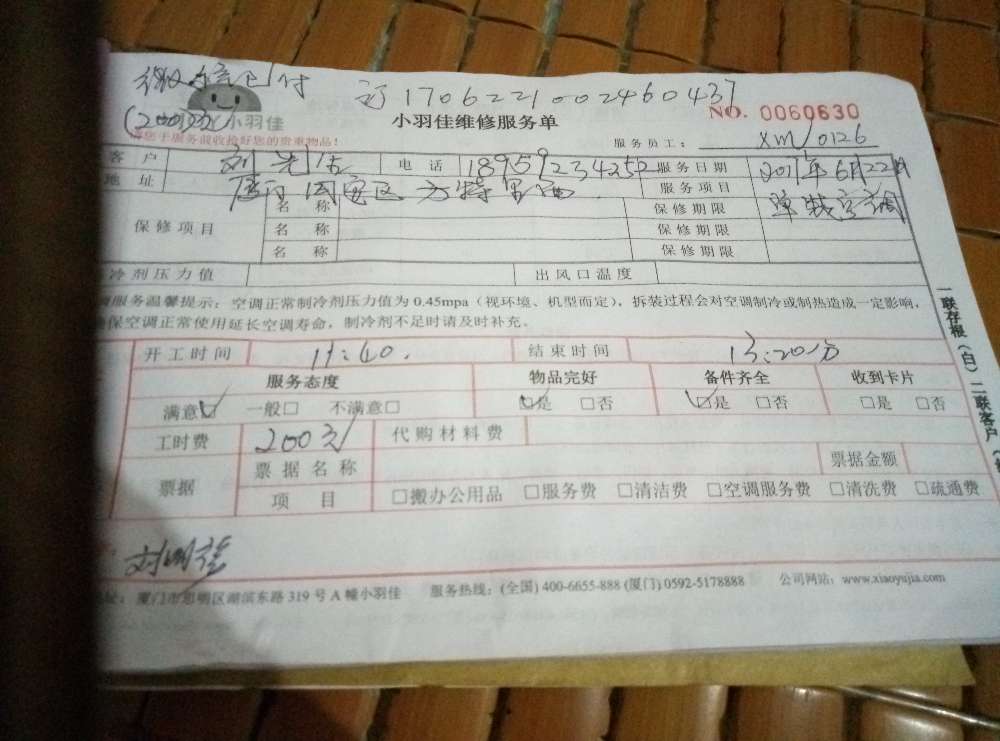 微信已付
(200元)
订170622100246043 7
NO. 0060630
小羽佳
小羽佳维修服务单
请您于服务前收捡好您的贵重物品!
服务员工: XM/0126
客户 电话 18959234252 服务日期 2017年6月22日
地址 厦门同安区方特 服务项目 单装空调
保修项目 名称 保修期限
名称 保修期限
名称 保修期限
冷剂压力值 出风口温度
服务温馨提示:空调正常制冷剂压力值为 0.45mpa(视环境、机型而定),拆装过程会对空调制冷或制热造成一定影响,
保空调正常使用延长空调寿命,制冷剂不足时请及时补充。
开工时间 11:40. 结束时间 13:20分
服务态度 物品完好 备件齐全 收到卡片
满意□ 一般□ 不满意□ □是 □否 □是 □否 □是 □否
工时费 200元 代购材料费
票据 票据名称 票据金额
项目 □搬办公用品 □服务费 □清洁费 □空调服务费 □清洗费 □疏通费
地址: 厦门市思明区湖滨东路 319 号 A 幢小羽佳 服务热线:(全国) 400-6655-888 (厦门) 0592-5178888 公司网站:www.xiaoyujia.com
一联存根(白)二联客户